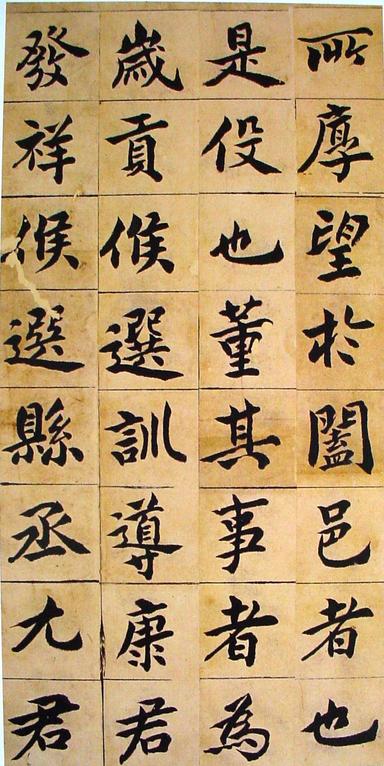 所厚望於闔邑者也
是役也董其事者為
歲貢候選訓導康君
發祥候選縣丞尤君